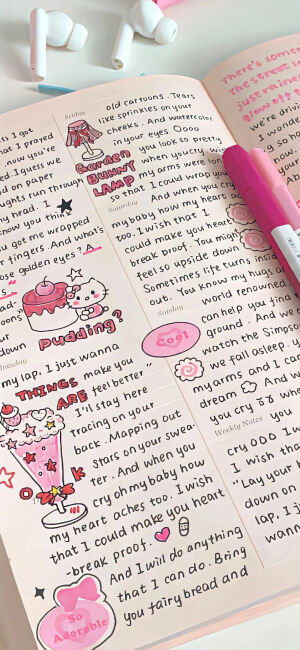 I got
that I prayed
now you're
I guess we
on paper
thoughts run through
my head. I
know you think
you got me wrapped
fingers. And what's
those golden eyes? A
dad.
down
Wednesday
my lap. I just wanna
make you
feel better"
I'll stay here
tracing on your
back. Mapping out
stars on your swea-
ter. And when you
cry oh my baby how
my heart aches too. I wish
that I could make you heart
-break proof.
And I will do anything
that I can do. Bring
you fairy bread and
pudding?
THINGS
ARE
OK
So
Adorable
Friday
old cartoons. Tears
like sprinkles on your
cheeks. And watercolor
in your eyes Oooo
you look so pretty
when you cry. Wish
my arms were long
so that I could wrap you
Garden
BUNNY
LAMP
Saturday
And when you cry
my baby how my heart a
too. I wish that I
could make you heart
break proof. You might
feel so upside down
Sometimes life turns insid
out. You know my hugs a
Sunday
world renowned.
can help you find
ground. And we c
watch the Simps
we fall asleep. y
my arms and I can
dream And w
you cry
Cool
Weekly Notes
cry ooo I w
I wish tha
"Lay your
down on
lap. I jus
wann
There's some
The street li
just rained
glow off
we're dri